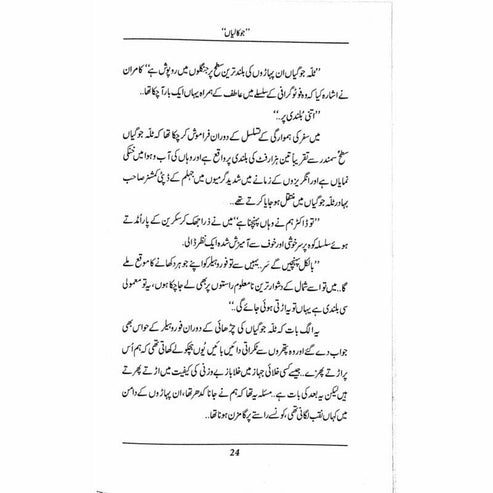 "جوکالیاں"
"ٹلّہ جوگیاں ان پہاڑوں کی بلند ترین سطح پر جنگلوں میں روپوش ہے" کامران
نے اشارہ کیا کہ وہ فوٹوگرافی کے سلسلے میں عاطف کے ہمراہ یہاں ایک بار آچکا تھا..
"اتنی بُلندی پر.."
میں سفر کی ہمواری کے تسلسل کے دوران فراموش کر چکا تھا کہ ٹلّہ جوگیاں
سطحِ سمندر سے تقریباً تین ہزار فٹ کی بلندی پر واقع ہے اور وہاں کی آب و ہوا میں خنکی
نمایاں ہے اور انگریزوں کے زمانے میں شدید گرمیوں میں جہلم کے ڈپٹی کمشنر صاحب
بہادر ٹلّہ جوگیاں میں منتقل ہو جایا کرتے تھے..
"تو ڈاکٹر ہم نے وہاں پہنچنا ہے" میں نے ذرا جھک کر سکرین کے پار اُمڈتے
ہوئے سلسلہ کوہ پر سرخوشی اور خوف سے آمیزش شدہ ایک نظر ڈالی.
"بالکل پہنچیں گے سَر.. یہیں سے تو فور وہیلر کو اپنے جوہر دکھانے کا موقع ملے
گا.. میں تو اسے شمال کے دشوار ترین نامعلوم راستوں پر بھی لے جا چکا ہوں، یہ تو معمولی
سی بلندی ہے یہاں تو یہ اڑتی ہوئی جائے گی.."
یہ الگ بات کہ ٹلّہ جوگیاں کی چڑھائی کے دوران فور وہیلر کے حواس بھی
جواب دے گئے اور وہ پتھروں سے ٹکراتی دائیں بائیں یُوں ہچکولے کھاتی تھی کہ ہم اُس
پر اڑتے پھرے.. جیسے کسی خلائی جہاز میں خلا باز بے وزنی کی کیفیت میں اڑتے پھرتے
ہیں لیکن یہ بعد کی بات ہے.. مسئلہ یہ تھا کہ ہم نے جانا کدھر تھا، ان پہاڑوں کے دامن
میں کہاں نقب لگانی تھی، کونسے راستے پر گامزن ہونا تھا..
24